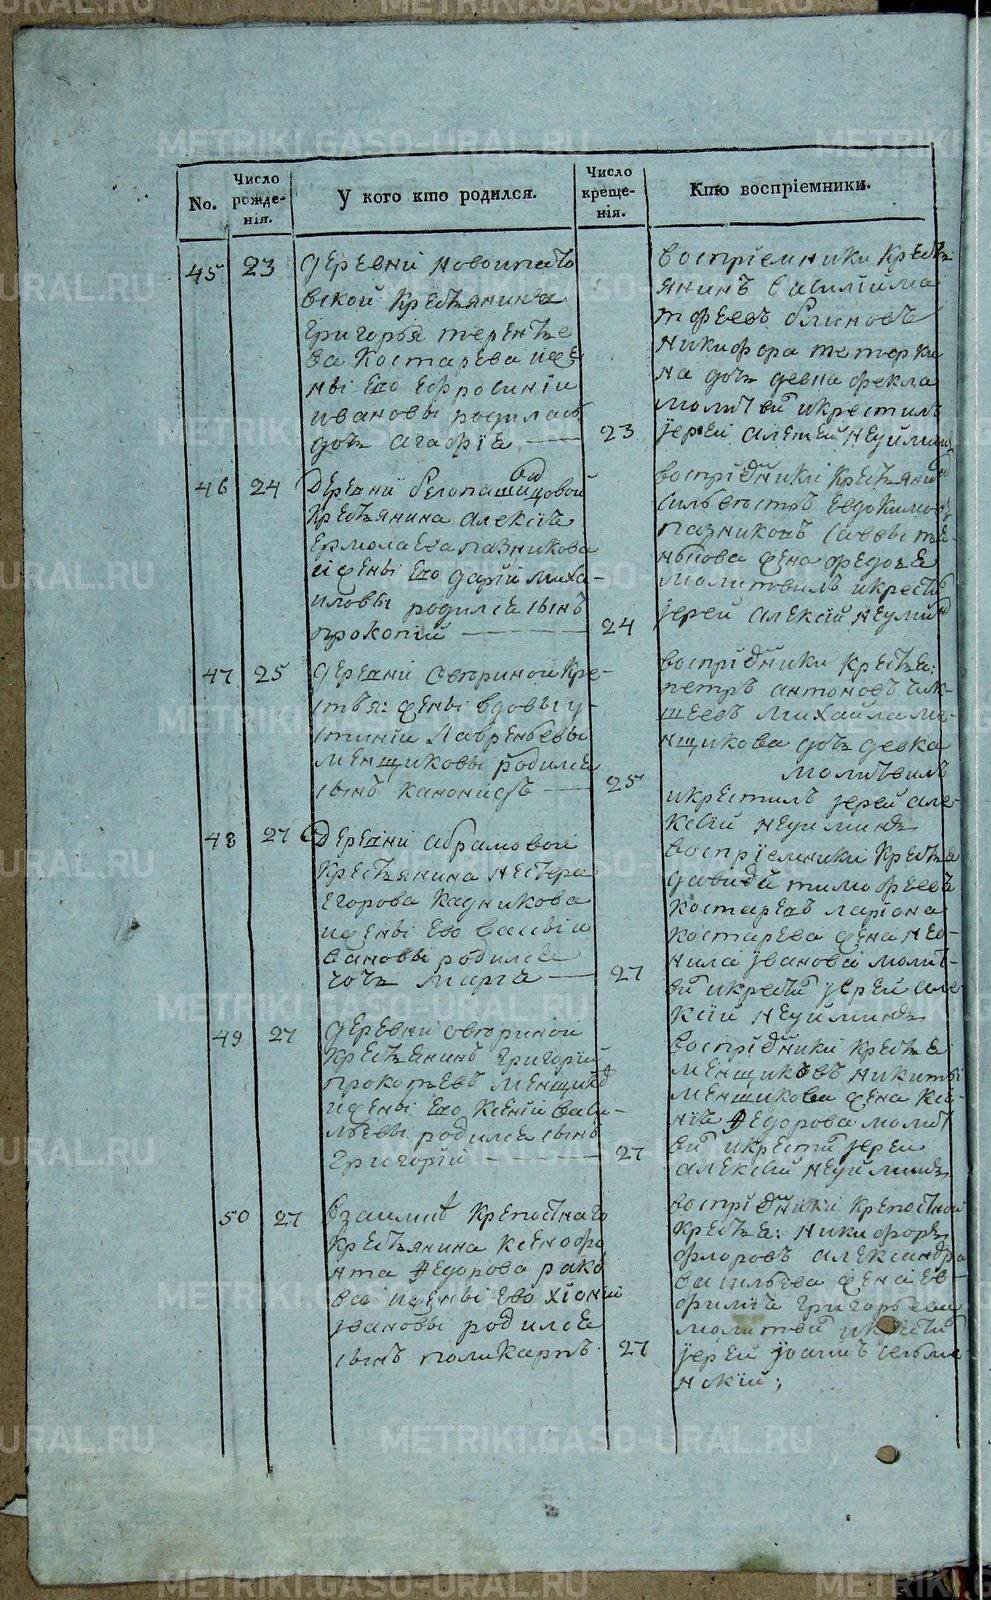 No.
Число рожде-нія.
У кого кто родился.
Число креще-нія.
Кто воспріемники.
45
23
деревни новоипато
вской крестьянина
григорья теренть
ва Костарева ижe
ны его Ефросиніи
ивановы родилась
дочь агафіе
23
воспріемники крест
янинъ василій ма
тфеевъ блиновъ
никифора тетерки
на дочь девка фекла
молитви икрестилъ
іерей алексей неуймин
46
24
деревни белопашинцовой
крестьянина алексіе
ермолаева пазникова
ижены его дарїи миха-
иловы родилсе сынъ
прокопій
24
воспріемники крестьяни
сильвестръ Евдокимовъ
пазниковъ саввы
жена федосе
молитвилъ икрести
іерей алексій неумин
47
25
деревни овчриной кре-
стья: жены вдовы у-
стиніи лаврентьевы
менщиковы родилсе
сынъ канонистъ
25
воспріемники крестье:
петръ антоновъ
михайла ме-
нщикова дочь девка
молитвилъ
икрестилъ іерей але-
ксій неуйминъ
48
27
деревни абрамовой
крестьянина нестера
егорова кадникова
ижены ево васси и
вановы родилсе
дочь марїе
27
воспріемники крестье
давидъ тимофеевъ
костаревъ ларїона
костарева жена нео-
нила івановаї молит-
ви икрести іерей але
ксїи неуйминъ
49
27
деревни овчриной
крестьянинъ григорїй
прокопьевъ менщико
ижены его ксеніи васи-
льевы родилсе сынъ
григорій
27
воспріемники крестье
менщиковъ никиты
менщикова жена ксе-
ніе федорова молит
ви икрести іереи
алексїй неуйминъ
50
27
взаимке крепостнаго
крестьянина ксенофо
нта федорова рако
ва ижены ево хіоніи
івановы родилсе
сынъ поликарпъ
27
воспріемники крепостной
крестье: никифоръ
флоровъ александра
васильева жена ев-
фиміе григорьева
молитви икрести
іерей іоаннъ сельме-
нскій;
METRIKI.GASO-URAL.RU